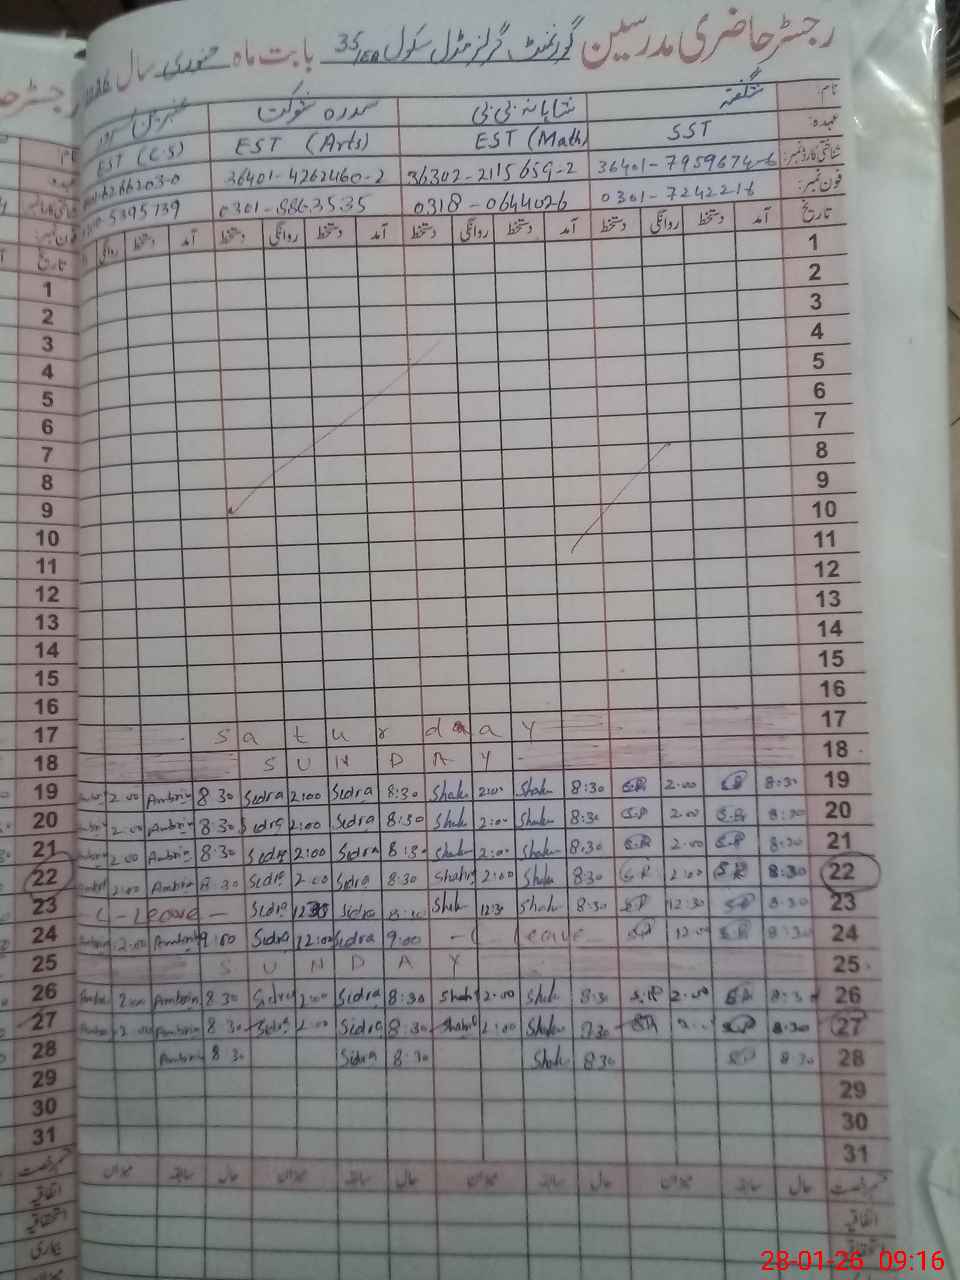 رجسٹر حاضری مدرسین گورنمنٹ گرلز مڈل سکول 35/EB بابت ماہ جنوری سال
نام: شگفتہ شاہانہ بی بی سدرہ شوکت
عہدہ: SST EST (Math) EST (Arts) EST (C.S)
شناختی کارڈ نمبر: 36401-7959674-6 36302-2115659-2 36401-4262460-2
فون نمبر: 0301-7242216 0318-0644026 0301-8863535
تاریخ آمد دستخط روانگی دستخط آمد دستخط روانگی دستخط آمد دستخط روانگی دستخط آمد دستخط روانگی
1
2
3
4
5
6
7
8
9
10
11
12
13
14
15
16
17 Saturday
18 SUNDAY
19 2:00 Ambrin 8 30 Sedra 2:00 Sedra 8:30 Shah 2:00 Shah 8:30 S.R 2.00 S.R 8:30 19
20 2:00 Ambrin 8:30 Sedra 2:00 Sedra 8:30 Shah 2:00 Shah 8:30 S.R 2.00 S.R 8:30 20
21 2:00 Ambrin 8:30 Sedra 2:00 Sedra 8:30 Shah 2:00 Shah 8:30 S.R 2.00 S.R 8:30 21
22 2:00 Ambrin 8:30 Sedra 2:00 Sedra 8:30 Shah 2:00 Shah 8:30 S.R 2:00 S.R 8:30 22
23 - C - Leave - Sedra Sedra 8:30 Shah 12:30 Shah 8:30 S.R 12:30 S.R 8:30 23
24 2:00 Ambrin 9:00 Sedra 12:00 Sedra 9:00 - C leave S.R 12:00 S.R 8:30 24
25 SUNDAY 25
26 2:00 Ambrin 8:30 Sedra 2:00 Sedra 8:30 Shah 2:00 Shah 8:30 S.R 2:00 S.R 8:30 26
27 2:00 Ambrin 8:30 Sedra 2:00 Sedra 8:30 Shah 2:00 Shah 8:30 S.R S.R 8:30 27
28 Ambrin 8:30 Sedra 8:30 Shah 8:30 S.R 8:30 28
29
30
31
حال سابقہ میزان حال سابقہ میزان حال سابقہ میزان حال سابقہ میزان
اتفاقیہ
استحقاقیہ
بیماری
28-01-26 09:16